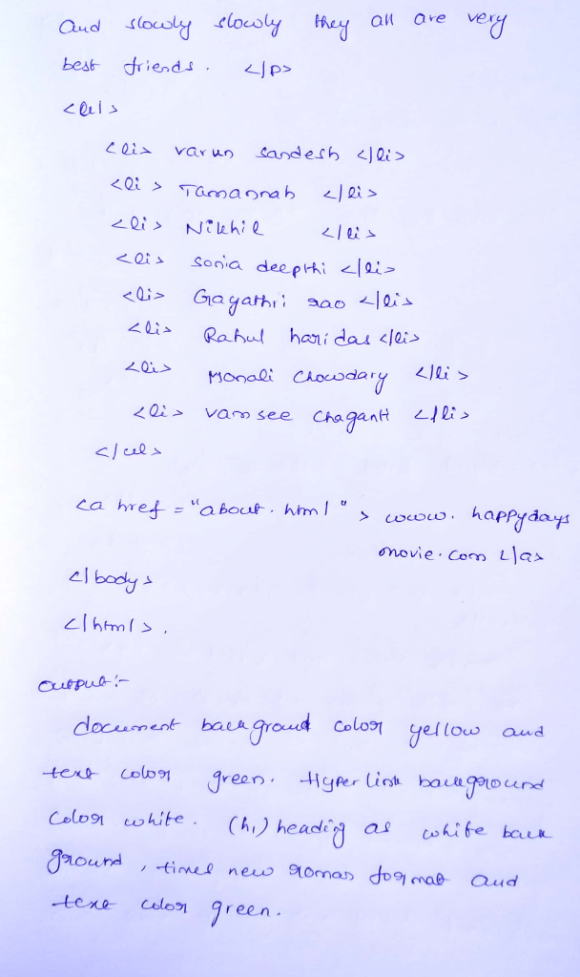 and slowly slowly they all are very
best friends. </p>
<ul>
<li> varun sandesh </li>
<li> Tamannah </li>
<li> Nikhil </li>
<li> sonia deepthi </li>
<li> Gayathri rao </li>
<li> Rahul haridas </li>
<li> Monali chowdary </li>
<li> vamsee chaganti </li>
</ul>
<a href = "about.html" > www. happydays
movie.com </a>
</body>
</html>.
output:-
document background color yellow and
text color green. Hyper link background
color white. (h1) heading as white back
ground, times new roman format and
text color green.